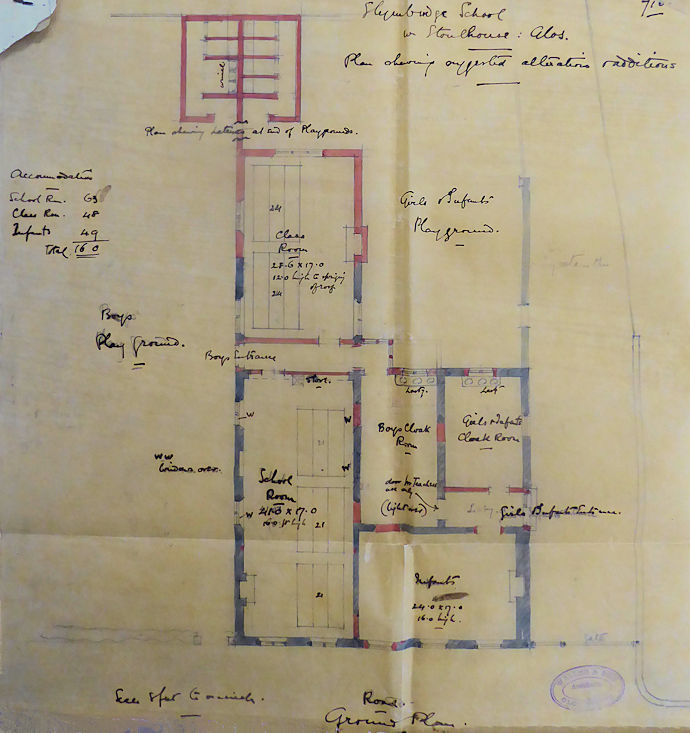 Slymbridge School
nr Stonehouse : Glos.
Plan showing suggested alterations & additions
urinal
Plan showing Latrines at end of Playgrounds.
Accommodation
School Rm. 63
Class Rm. 48
Infants 49
Total 160
Girls & Infants
Playground.
24
Class
Room
28.6 x 17.0
12.0 high to springing
of roof.
24
Boys
Play ground.
Boys Entrance
Stove.
Lavty.
Lavty
W
W
Boys Cloak
Room
Girls & Infants
Cloak Room
21
W W
Windows over.
School
Room
41.6 x 17.0
high
W
W
door for Teachers
use only
(light over)
Girls & Infants Entrance.
21
Infants
24.0 x 17.0
16.0 high.
21
Gate
Scale 8 feet to an inch.
Road.
Ground Plan.